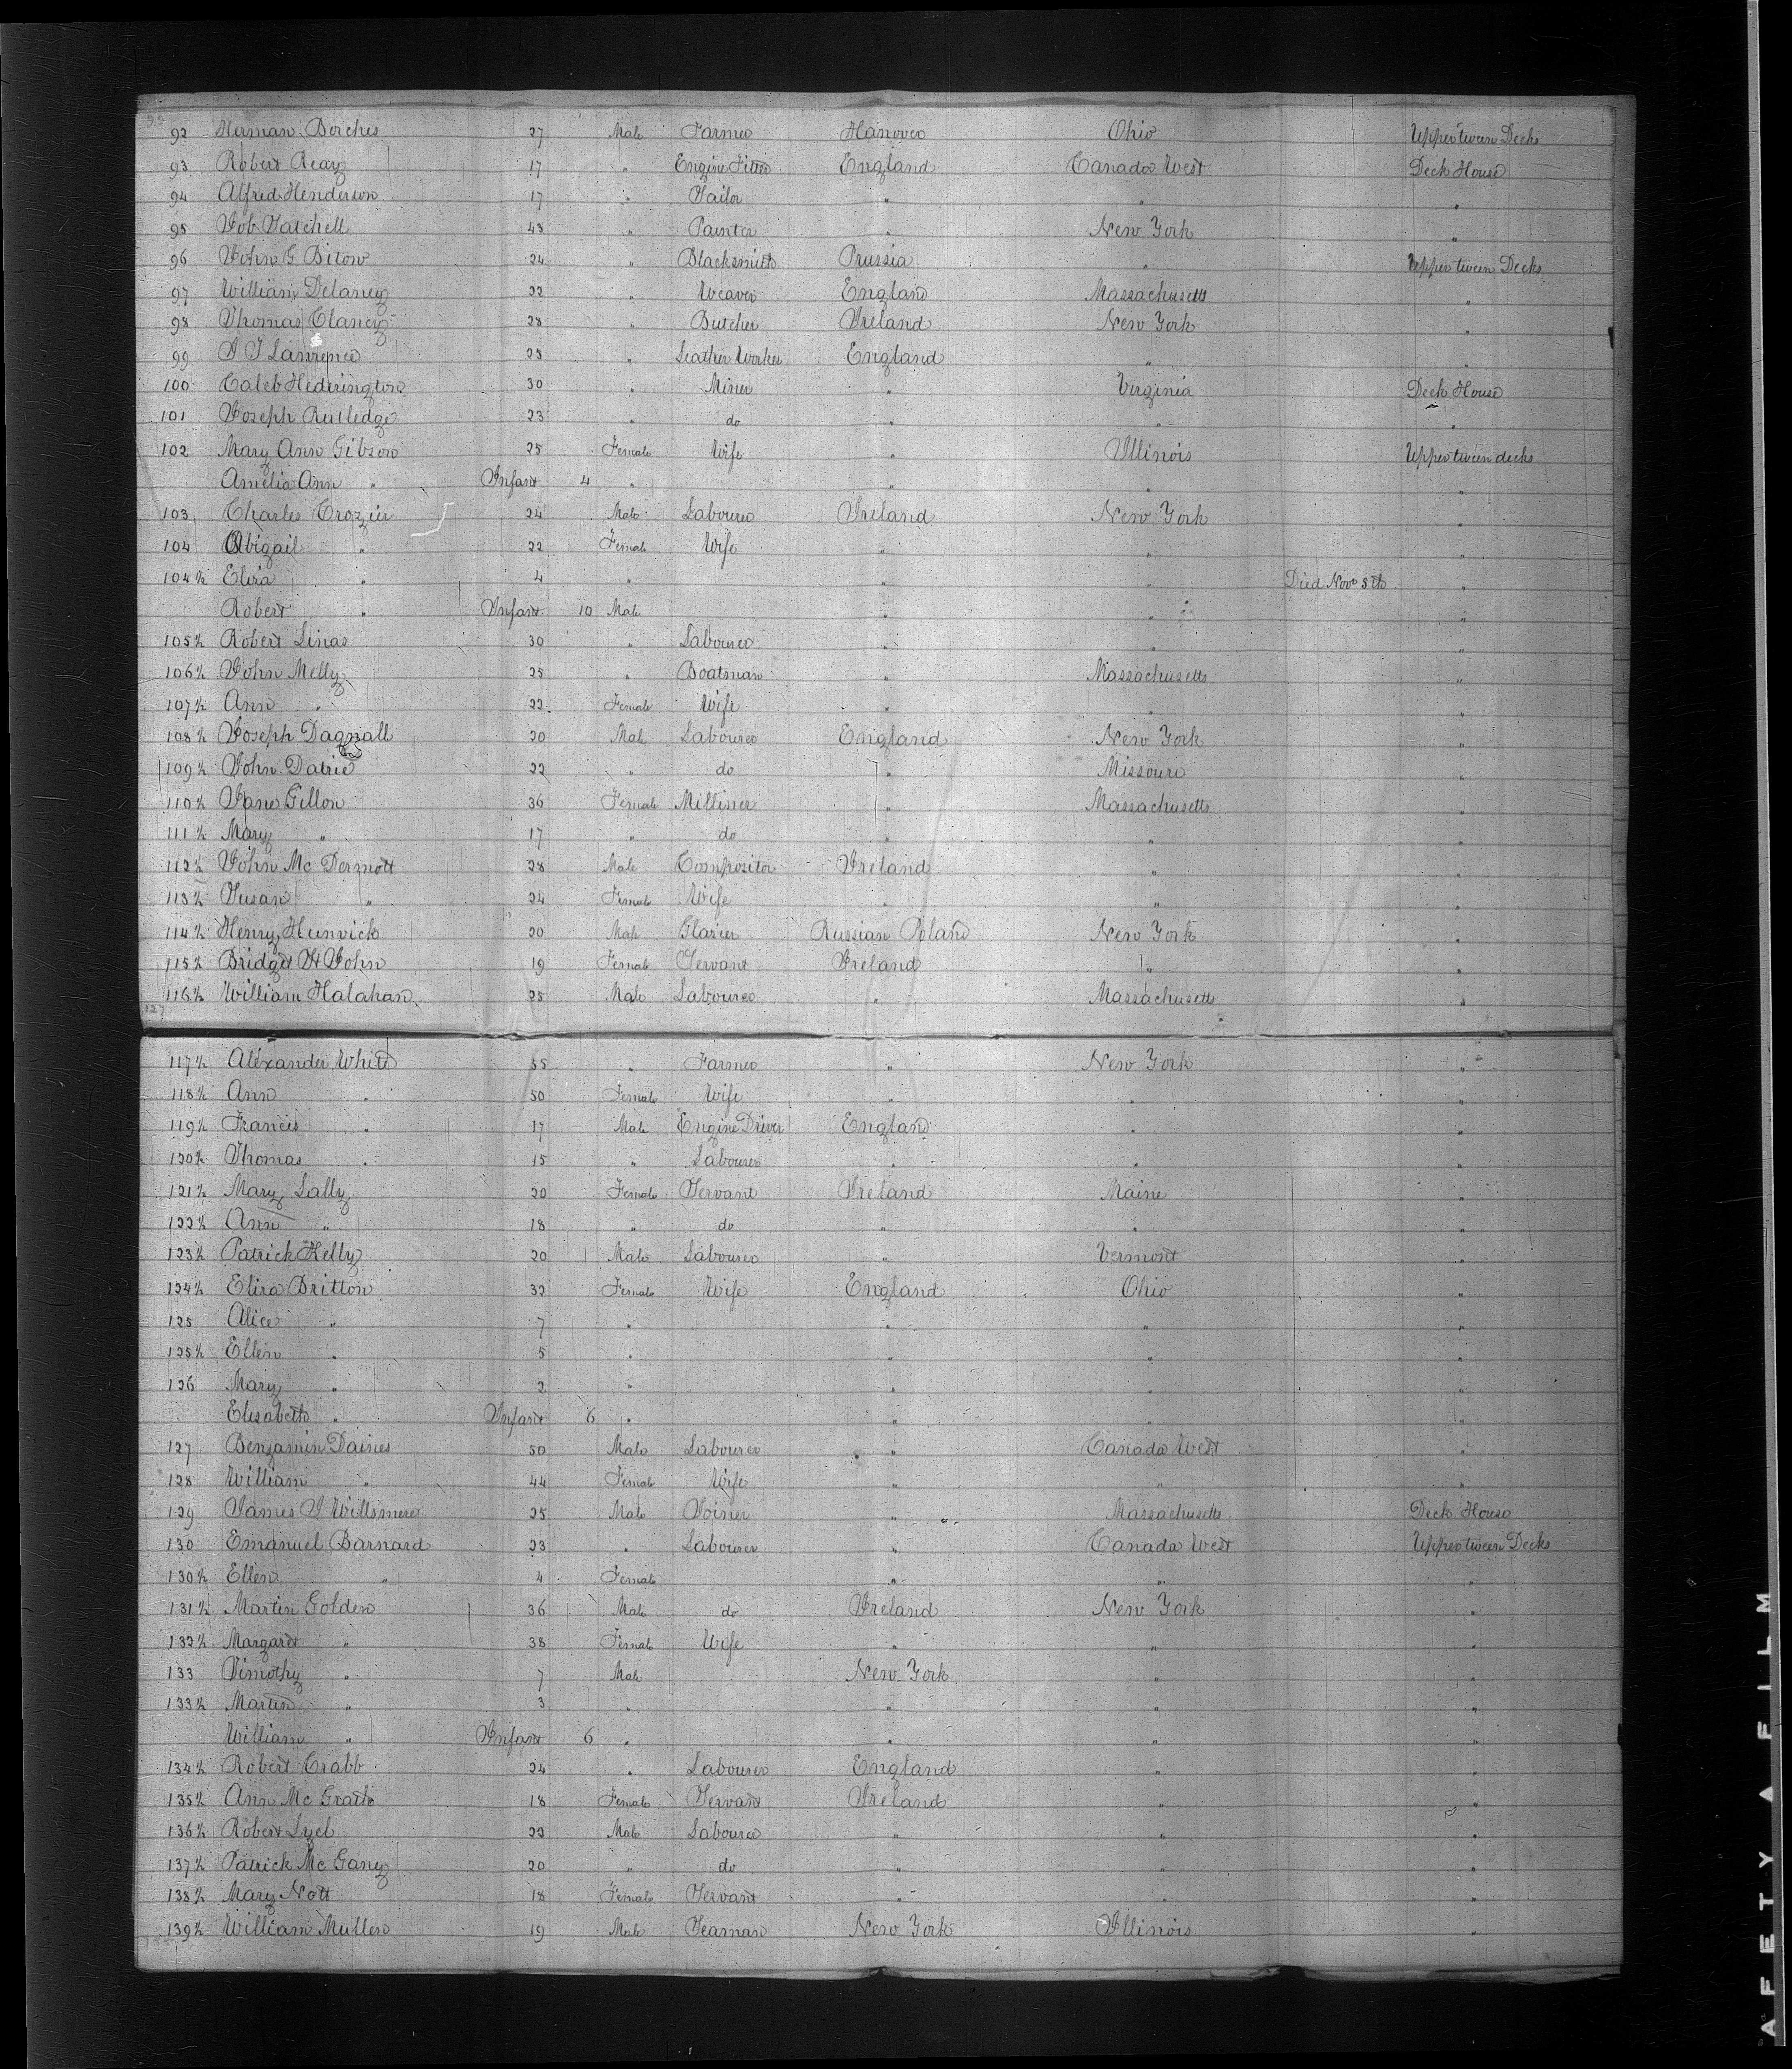 92 Herman Borches 27 Male Farmer Hanover Ohio Upper tween Decks
93 Robert Reay 17 " Engine Fitter England Canada West Deck House
94 Alfred Henderson 17 " Tailor " " "
95 Job Tatchell 43 " Painter " New York "
96 John G Bitow 24 " Blacksmith Prussia " Upper tween Decks
97 William Delaney 22 " Weaver England Massachusetts "
98 Thomas Clancy 28 " Butcher Ireland New York "
99 Lawrence 23 " Leather Worker England " "
100 Caleb Hederington 30 " Miner " Virginia Deck House
101 Joseph Rutledge 23 " do " " "
102 Mary Ann Gibson 25 Female Wife " Illinois Upper tween decks
Amelia Ann " Infant 4 " " " "
103 Charles Crozier 24 Male Labourer Ireland New York "
104 Abigail " 22 Female Wife " " "
104½ Eliza " 4 " " Died Nov 8th "
Robert " Infant 10 Male " " "
105½ Robert Linas 30 " Labourer " " "
106½ John Melly 25 " Boatman " Massachusetts "
107½ Ann " 22 Female Wife " " "
108½ Joseph Dagnall 20 Male Labourer England New York "
109½ John Datrie 22 " do " Missouri "
110½ Jane Gillon 36 Female Milliner " Massachusetts "
111½ Mary " 17 " do " " "
112½ John Mc Dermott 28 Male Compositor Ireland " "
113½ Susan " 24 Female Wife " " "
114½ Henry Hunvick 20 Male Glazier Russian Poland New York "
115½ Bridget St John 19 Female Servant Ireland " "
116½ William Halahan 25 Male Labourer " Massachusetts "
127
117½ Alexander White 55 " Farmer " New York "
118½ Ann " 50 Female Wife " " "
119½ Francis " 17 Male Engine Driver England " "
120½ Thomas " 15 " Labourer " " "
121½ Mary Lally 20 Female Servant Ireland Maine "
122½ Ann " 18 " do " " "
123½ Patrick Kelly 20 Male Labourer " Vermont "
124½ Eliza Britton 32 Female Wife England Ohio "
125 Alice " 7 " " " "
125½ Ellen " 5 " " " "
126 Mary " 2 " " " "
Elizabeth " Infant 6 " " " "
127 Benjamin Daines 50 Male Labourer " Canada West "
128 William " 44 Female Wife " " "
129 James J Willsmere 25 Male Joiner " Massachusetts Deck House
130 Emanuel Barnard 23 " Labourer " Canada West Upper tween Decks
130½ Ellen " 4 Female " " "
131½ Martin Golden 36 Male do Ireland New York "
132½ Margaret " 38 Female Wife " " "
133 Timothy " 7 Male New York " "
133½ Martin " 3 " " " "
William " Infant 6 " " " "
134½ Robert Crabb 24 " Labourer England " "
135½ Ann Mc Grath 18 Female Servant Ireland " "
136½ Robert Lyel 22 Male Labourer " " "
137½ Patrick Mc Gany 20 " do " " "
138½ Mary Nott 18 Female Servant " " "
139½ William Mullen 19 Male Seaman New York Illinois "
AFETY AFILM